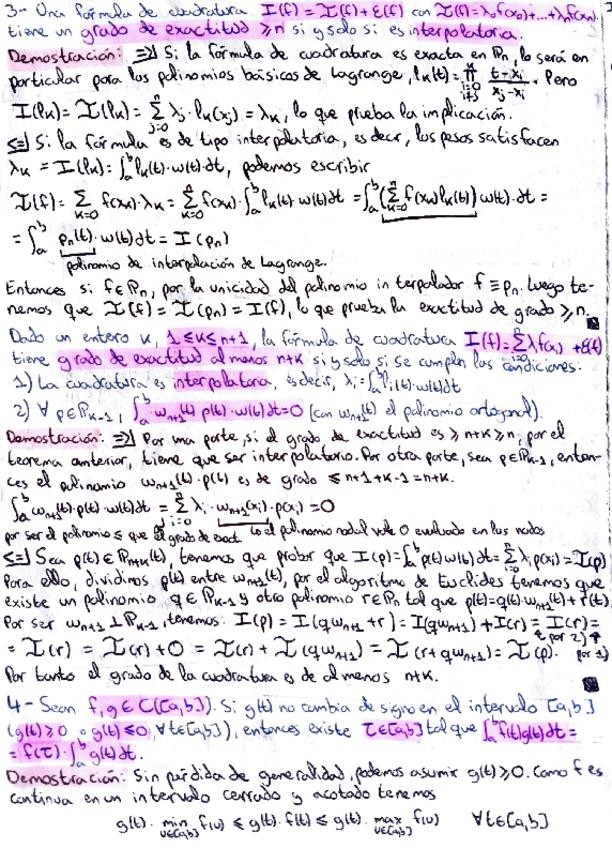 3- Una fórmula de cuadratura I(f) = 𝓘(f) + ε(f) con 𝓘(f) = λ₀f(x₀)+...+λₙf(xₙ).
tiene un grado de exactitud ≥ n si y solo si es interpolatoria.
Demostración: ⇒] Si la fórmula de cuadratura es exacta en ℙₙ, lo será en
particular para los polinomios básicos de Lagrange, lₖ(t) = ∏ᵢ₌₀,ᵢ≠ⱼⁿ (t-xᵢ)/(xⱼ-xᵢ). Pero
I(lₖ) = 𝓘(lₖ) = Σⱼ₌₀ⁿ λⱼ·lₖ(xⱼ) = λₖ, lo que prueba la implicación.
⇐] Si la fórmula es de tipo interpolatoria, es decir, los pesos satisfacen
λₖ = I(lₖ) = ∫ₐᵇ lₖ(t)·w(t)·dt, podemos escribir
𝓘(f) = Σₖ₌₀ f(xₖ)·λₖ = Σₖ₌₀ⁿ f(xₖ)·∫ₐᵇ lₖ(t)·w(t)dt = ∫ₐᵇ (Σₖ₌₀ⁿ f(xₖ)lₖ(t)) w(t)·dt =
= ∫ₐᵇ pₙ(t)·w(t)dt = I(pₙ)
polinomio de interpolación de Lagrange.
Entonces si f∈ℙₙ, por la unicidad del polinomio interpolador f ≡ pₙ. Luego te-
nemos que 𝓘(f) = 𝓘(pₙ) = I(f), lo que prueba la exactitud de grado ≥ n.
Dado un entero k, 1 ≤ k ≤ n+1, la fórmula de cuadratura I(f) = Σᵢ₌₀ⁿ λᵢf(xᵢ) + ε(f)
tiene grado de exactitud al menos n+k si y solo si se cumplen las condiciones:
1) La cuadratura es interpolatoria, es decir, λᵢ = ∫ₐᵇ lᵢ(t)·w(t)dt
2) ∀ p∈ℙₖ₋₁, ∫ₐᵇ wₙ₊₁(t) p(t)·w(t)dt = 0 (con wₙ₊₁(t) el polinomio ortogonal).
Demostración: ⇒] Por una parte, si el grado de exactitud es ≥ n+k ≥ n, por el
teorema anterior, tiene que ser interpolatorio. Por otra parte, sea p∈ℙₖ₋₁, enton-
ces el polinomio wₙ₊₁(t)·p(t) es de grado ≤ n+1+k-1 = n+k.
∫ₐᵇ wₙ₊₁(t)·p(t)·w(t)dt = Σᵢ₌₀ⁿ λᵢ·wₙ₊₁(xᵢ)·p(xᵢ) = 0
por ser el polinomio ≤ que el grado de exact. el polinomio nodal vale 0 evaluado en los nodos
⇐] Sea p(t)∈ℙₙ₊ₖ(t), tenemos que probar que I(p) = ∫ₐᵇ p(t)w(t)dt = Σᵢ₌₀ⁿ λᵢp(xᵢ) = 𝓘(p)
Para ello, dividimos p(t) entre wₙ₊₁(t), por el algoritmo de Euclides tenemos que
existe un polinomio q∈ℙₖ₋₁ y otro polinomio r∈ℙₙ tal que p(t) = q(t)·wₙ₊₁(t)+r(t).
Por ser wₙ₊₁ ⊥ ℙₖ₋₁, tenemos: I(p) = I(qwₙ₊₁+r) = I(qwₙ₊₁)+I(r) = I(r) =
↑ por 2) ↑ por 1)
= 𝓘(r) = 𝓘(r)+0 = 𝓘(r)+𝓘(qwₙ₊₁) = 𝓘(r+qwₙ₊₁) = 𝓘(p).
Por tanto el grado de la cuadratura es de al menos n+k.
4- Sean f,g∈C([a,b]). Si g(t) no cambia de signo en el intervalo [a,b]
(g(t)≥0 o g(t)≤0, ∀t∈[a,b]), entonces existe τ∈[a,b] tal que ∫ₐᵇ f(t)g(t)dt =
= f(τ)·∫ₐᵇ g(t)dt.
Demostración: Sin pérdida de generalidad, podemos asumir g(t)≥0. Como f es
continua en un intervalo cerrado y acotado tenemos
g(t)· min_{u∈[a,b]} f(u) ≤ g(t)·f(t) ≤ g(t)· max_{u∈[a,b]} f(u) ∀t∈[a,b]